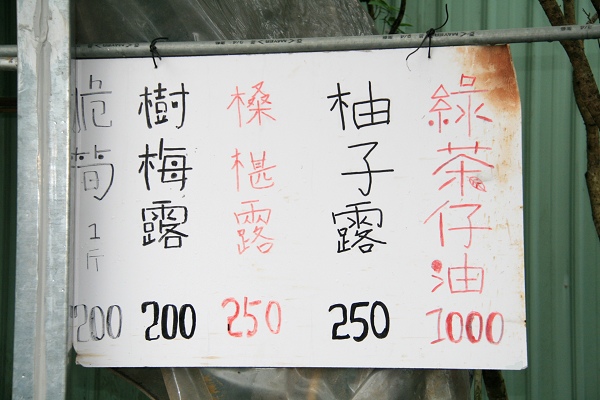 綠茶仔油
1000
柚子露
250
桑椹露
250
樹梅露
200
脆筍1斤
200